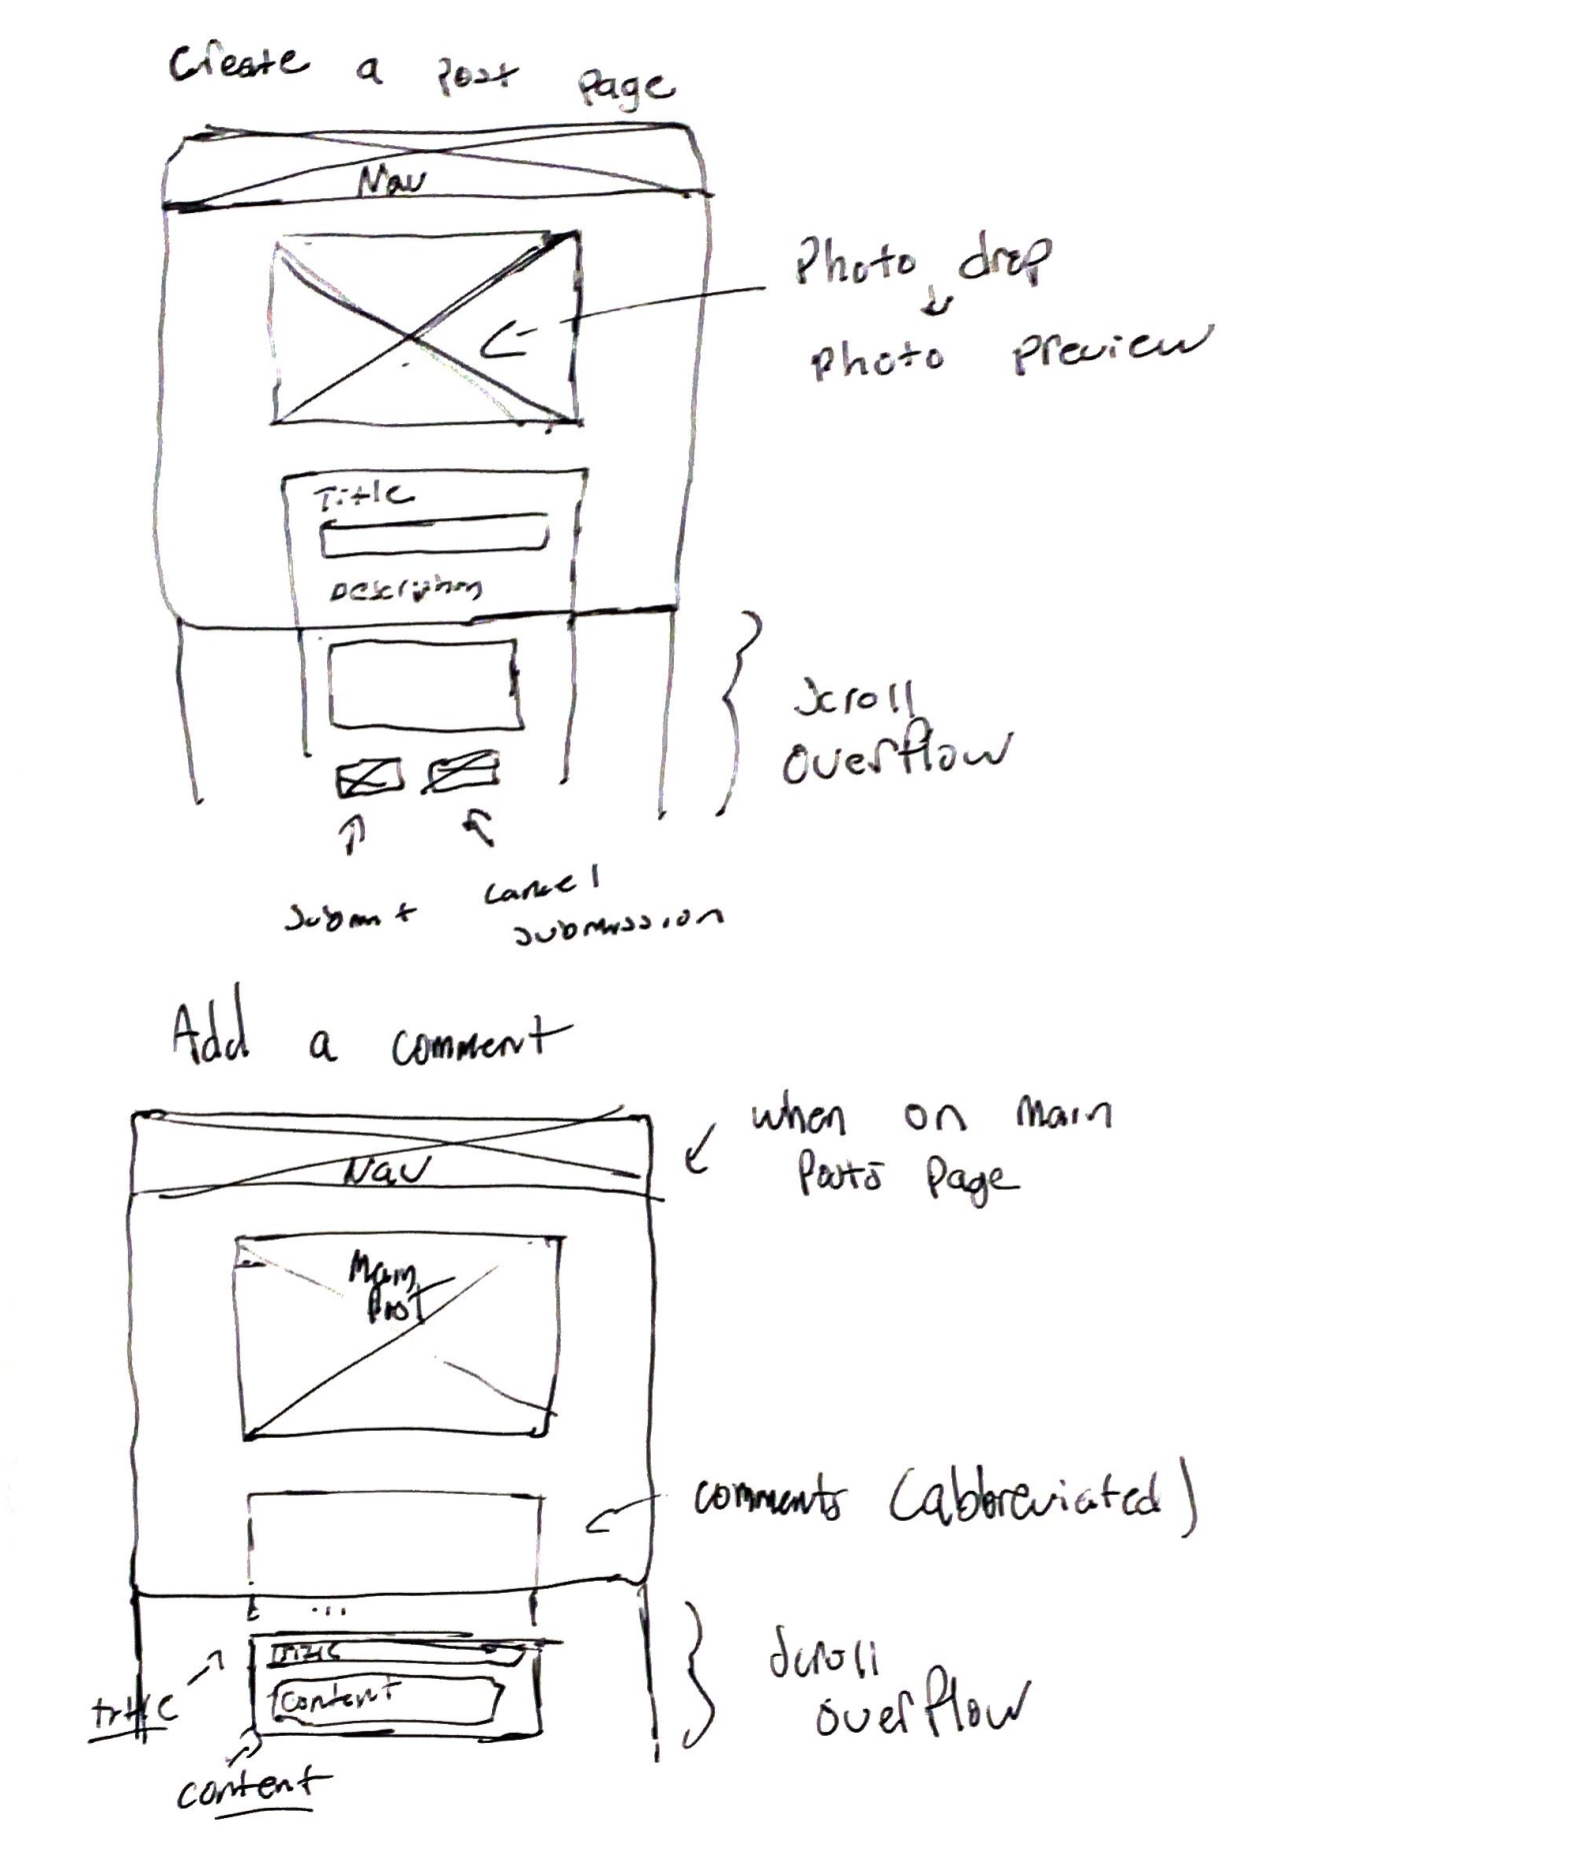 Create a Post Page
Nav
Photo drop
photo preview
Title
Description
Scroll
overflow
Submit
Cancel
submission
Add a comment
when on Main
Posts Page
Nav
Main
Post
comments (abbreviated)
...
title
Title
content
Scroll
overflow
content